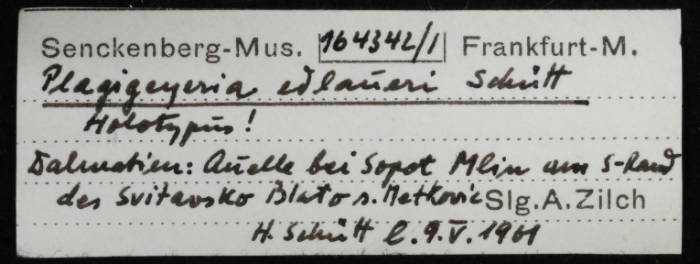 Senckenberg-Mus. 164342/1 Frankfurt-M.
Plagigeyeria edlaueri Schütt
Holotypus!
Dalmatien: Quelle bei Sopot Mlin am S-Rand
des Svitavsko Blato s. Metkovic Slg. A. Zilch
H. Schütt l. 9.V.1961